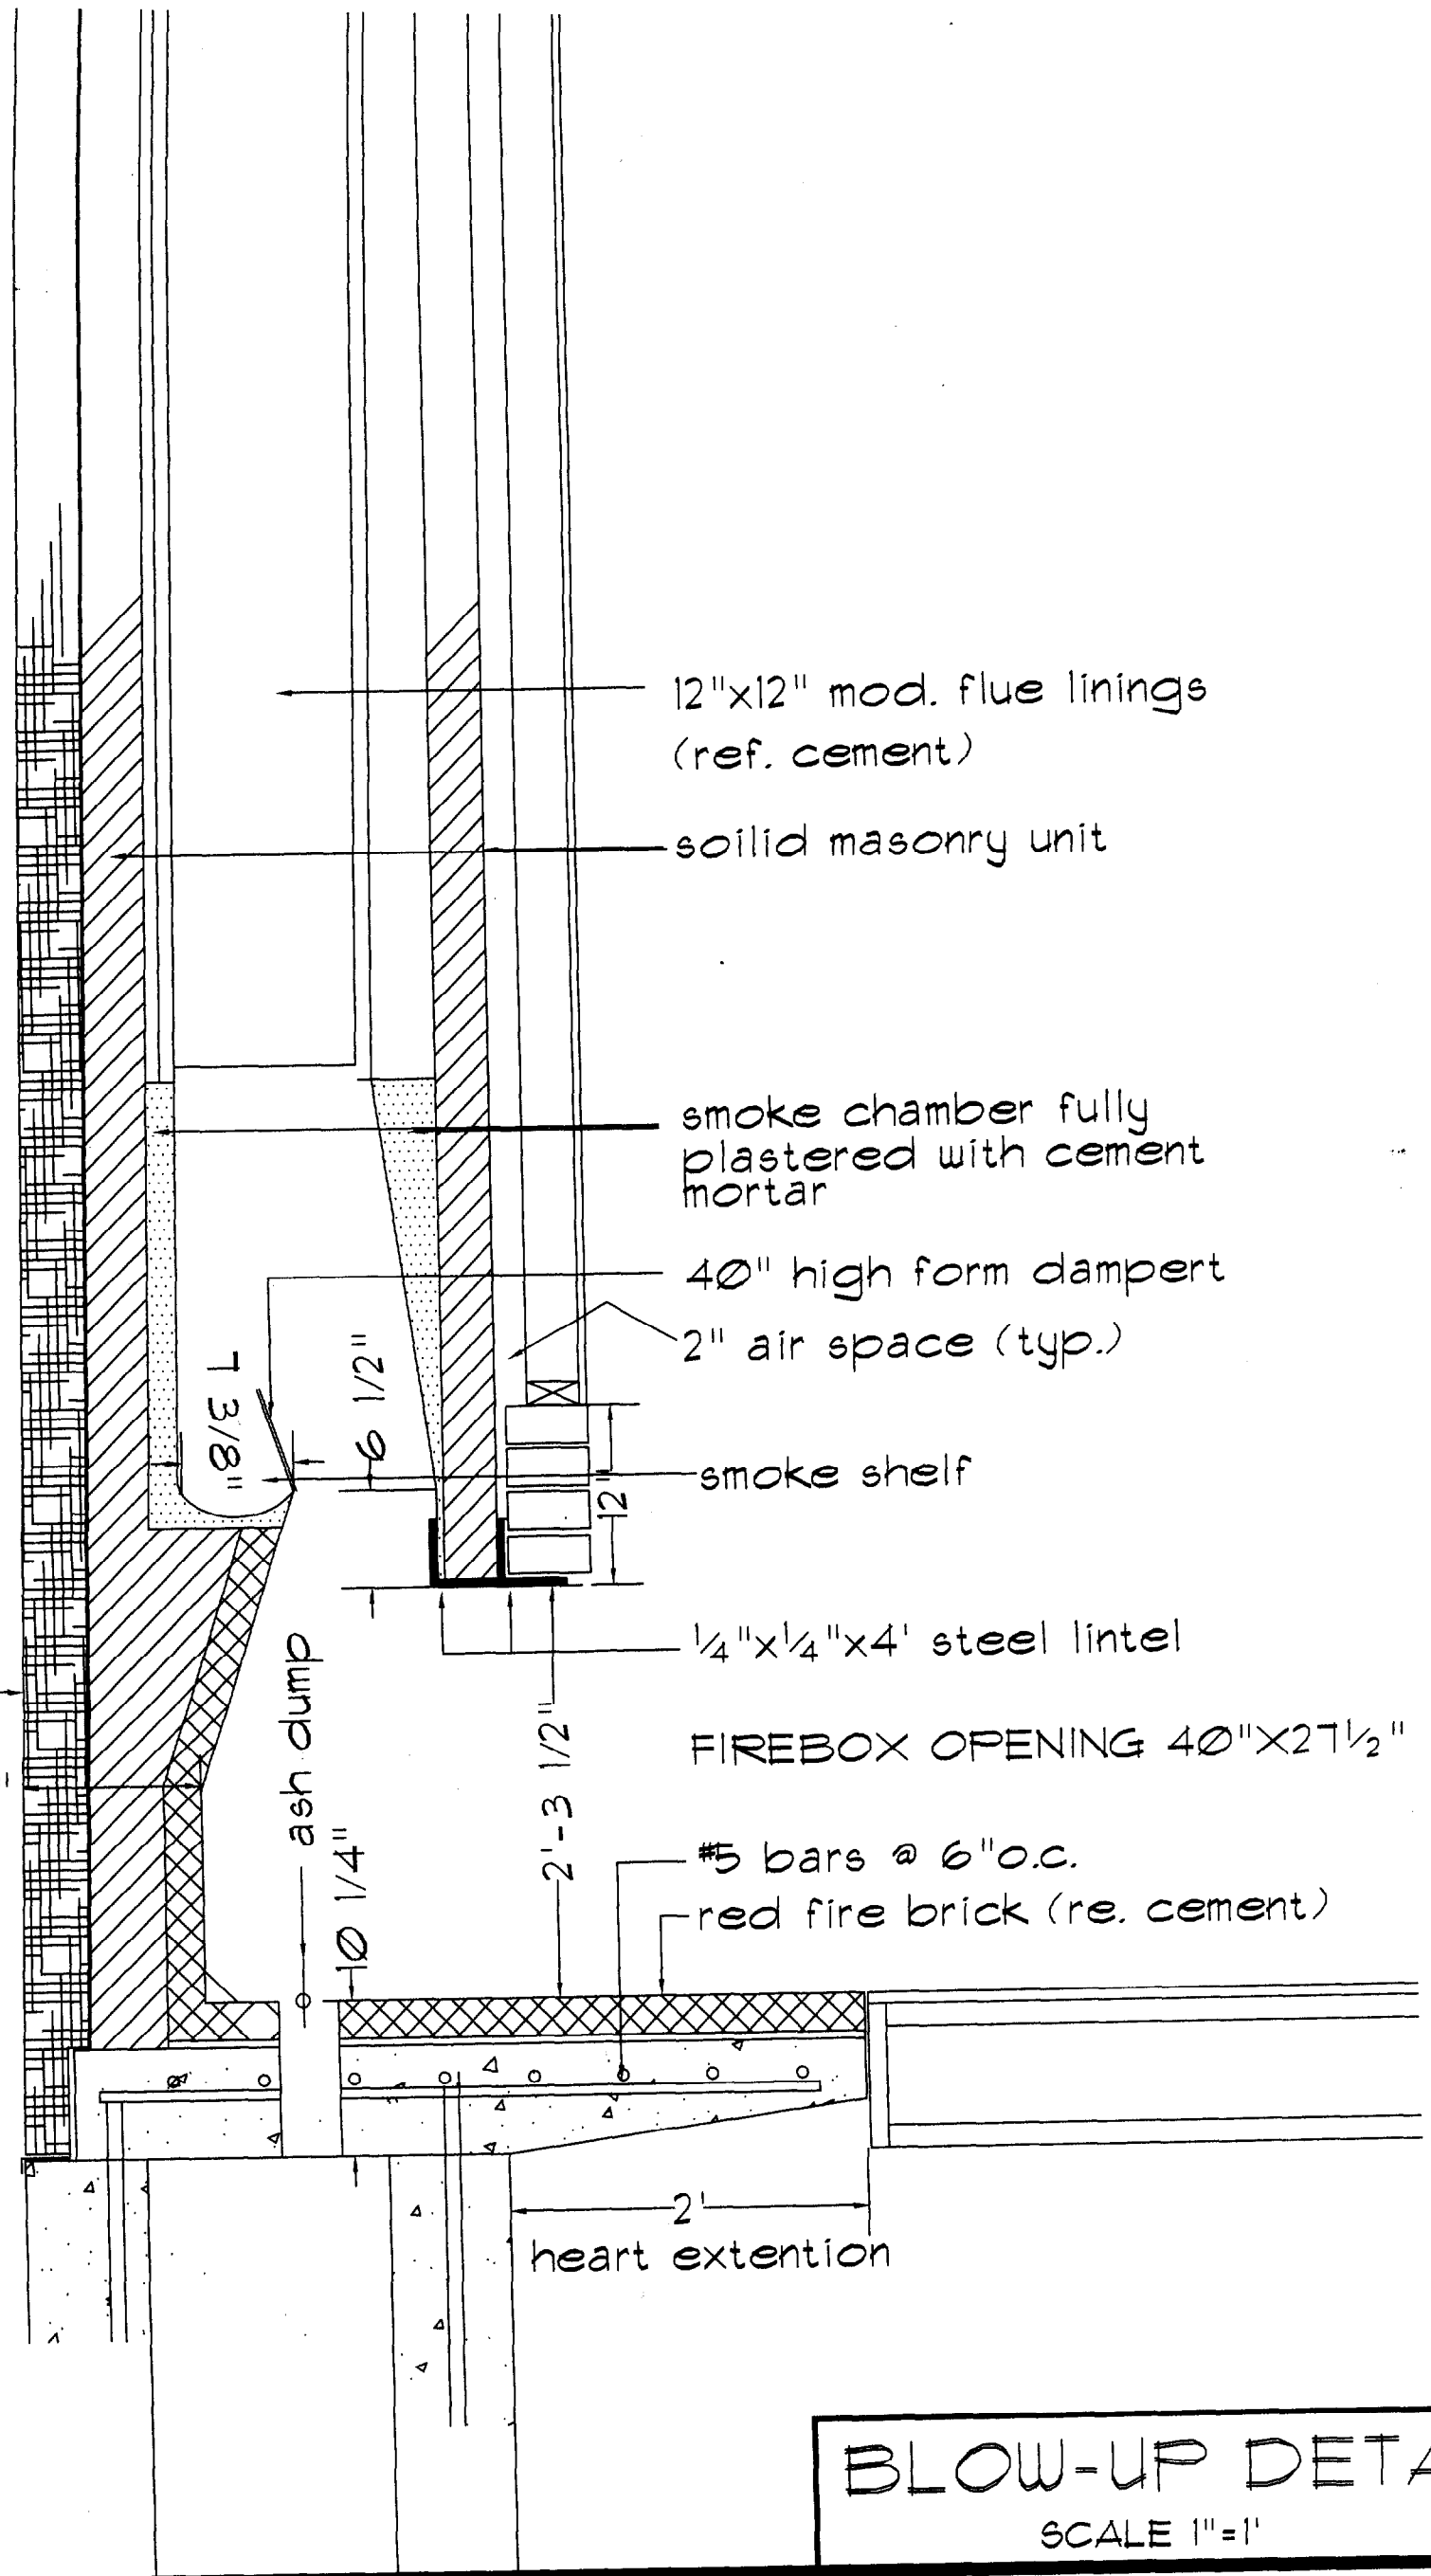 12"x12" mod. flue linings
(ref. cement)
soilid masonry unit
smoke chamber fully
plastered with cement
mortar
40" high form dampert
2" air space (typ.)
7 3/8"
6 1/2"
smoke shelf
12"
1/4"x1/4"x4' steel lintel
ash dump
FIREBOX OPENING 40"X27 1/2"
2'-3 1/2"
#5 bars @ 6"o.c.
10 1/4"
red fire brick (re. cement)
2'
heart extention
BLOW-UP DETA
SCALE 1"=1'